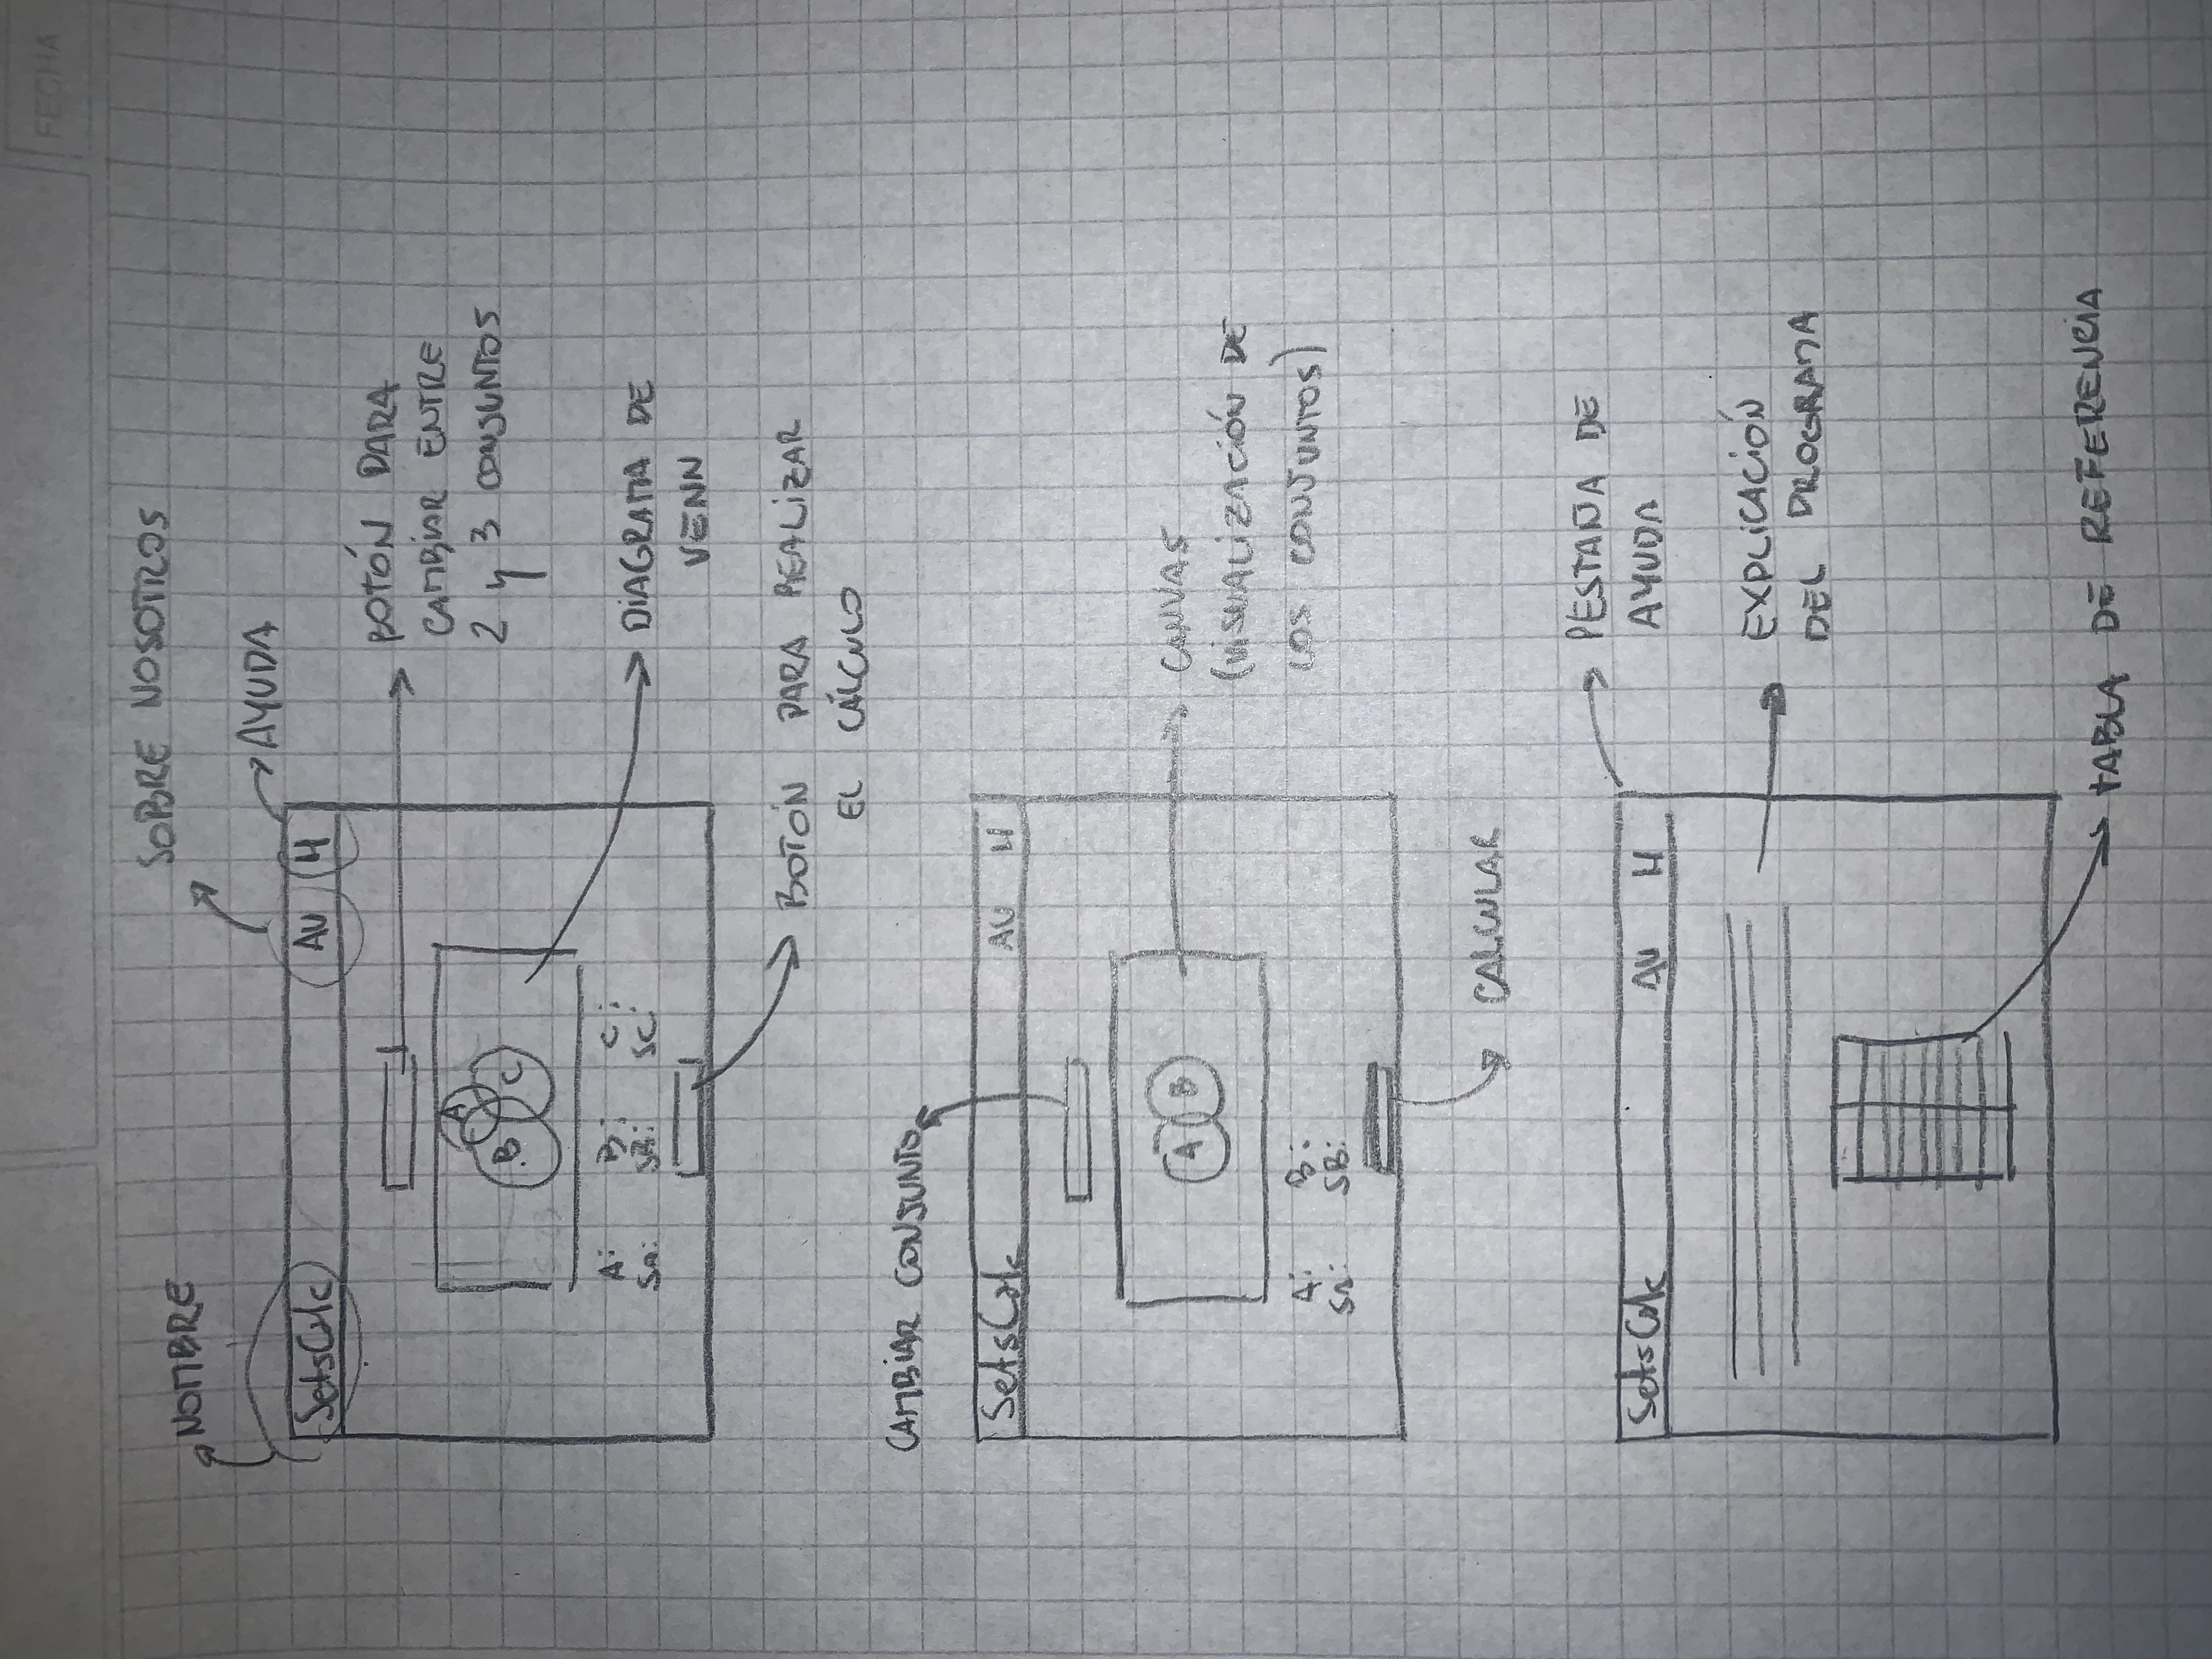 FECHA
SOBRE NOSOTROS
NOMBRE
AYUDA
SetsCalc AU H
BOTÓN PARA
CAMBIAR ENTRE
2 y 3 CONJUNTOS
A
B C
A: B: C:
Sa: SB: SC:
DIAGRAMA DE
VENN
BOTÓN PARA REALIZAR
EL CÁLCULO
CAMBIAR CONJUNTO
SetsCalc AU H
A B
CANVAS
(VISUALIZACIÓN DE
LOS CONJUNTOS)
A: B:
Sa: SB:
CALCULAR
PESTAÑA DE
AYUDA
SetsCalc AU H
EXPLICACIÓN
DEL PROGRAMA
TABLA DE REFERENCIA